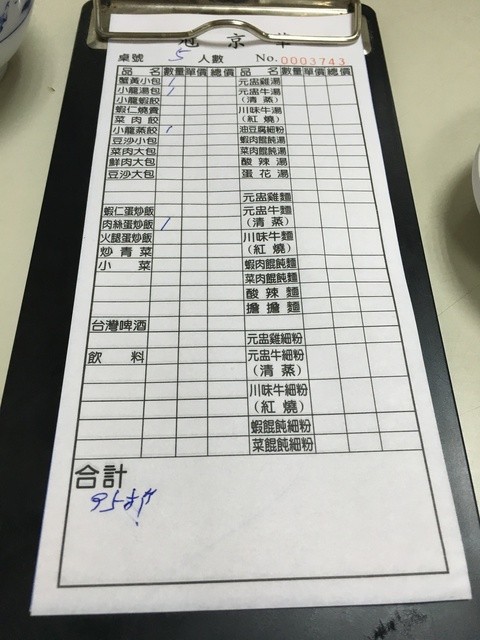 冠京華
桌號 5 人數 No. 0003743
品名 數量 單價 總價 品名 數量 單價 總價
蟹黃小包 元盅雞湯
小龍湯包 1 元盅牛湯(清蒸)
小龍蝦餃
蝦仁燒賣 川味牛湯(紅燒)
菜肉餃
小龍蒸餃 1 油豆腐細粉
豆沙小包 蝦肉餛飩湯
菜肉大包 菜肉餛飩湯
鮮肉大包 酸辣湯
豆沙大包 蛋花湯
元盅雞麵
蝦仁蛋炒飯 元盅牛麵(清蒸)
肉絲蛋炒飯 1
火腿蛋炒飯 川味牛麵(紅燒)
炒青菜
小菜 蝦肉餛飩麵
菜肉餛飩麵
酸辣麵
擔擔麵
台灣啤酒
元盅雞細粉
飲料 元盅牛細粉(清蒸)
川味牛細粉(紅燒)
蝦餛飩細粉
菜餛飩細粉
合計